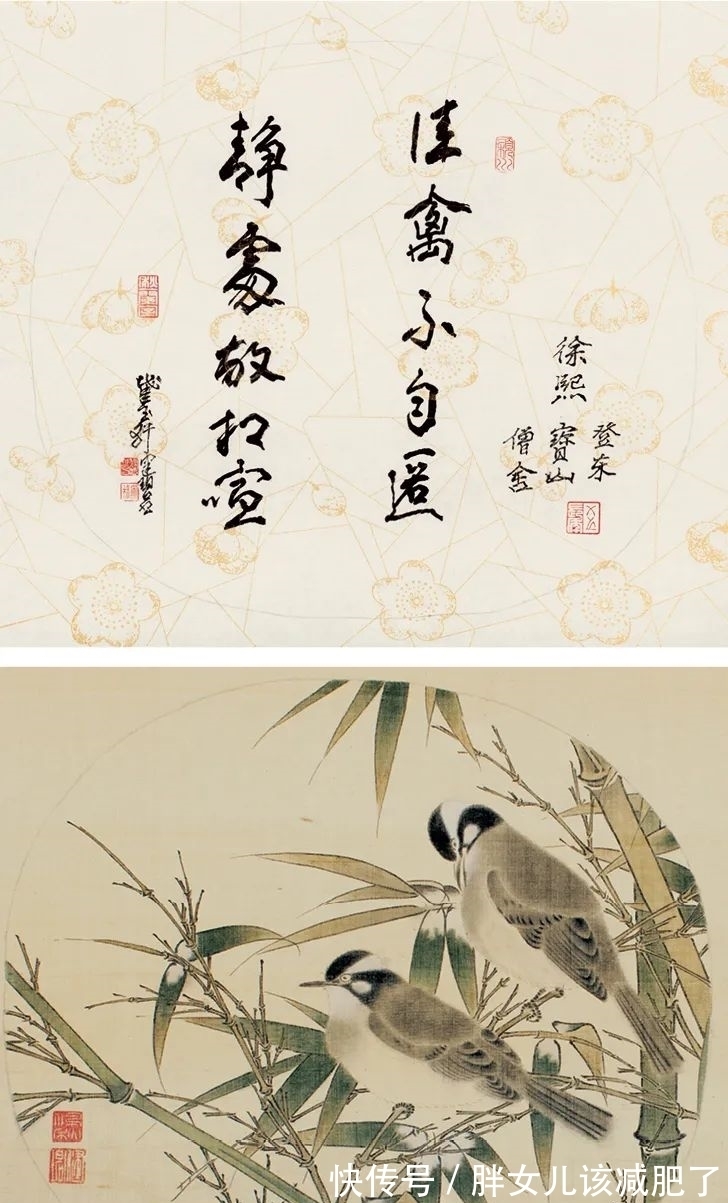 徐熙
登东
寶山
僧舍
佳禽不自匿
靜處故相喧
快传号 / 胖女儿该减肥了